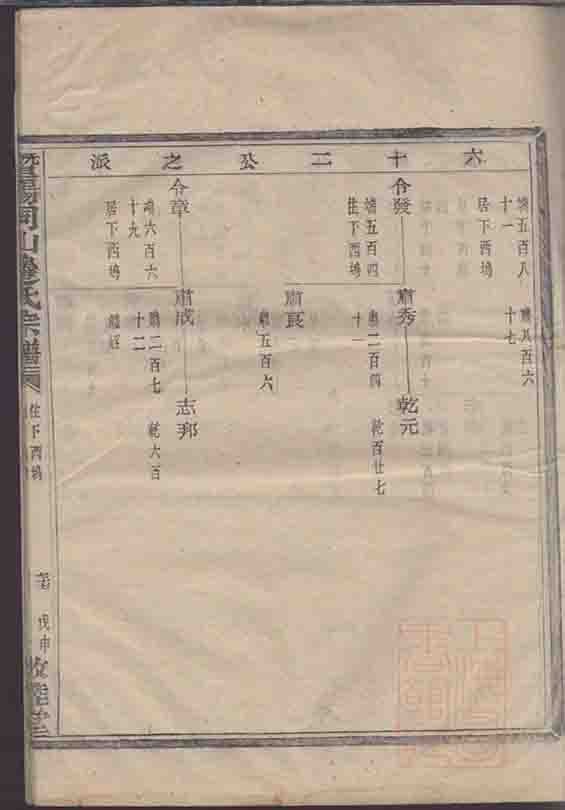 六十二公之派
端五百八
十一
居下西塢
肅八百六
十七
令發
端五百四
住下西塢
肅秀
肅二百四
十一
乾元
乾百廿七
肅良
肅五百六
令章
端六百六
十九
居下西塢
肅成
肅二百七
十二
志邦
乾六百
暨陽同山邊氏宗譜
住下西塢
戊申
敦睦堂